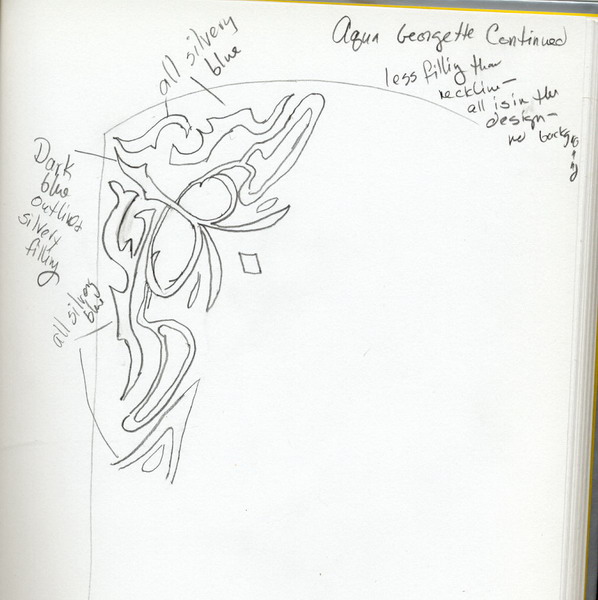 Aqua Georgette Continued
less filling than
neckline-
all is in the
design-
no backgr
all silvery
blue
Dark
blue
outlines
silvery
filling
all silvery
blue